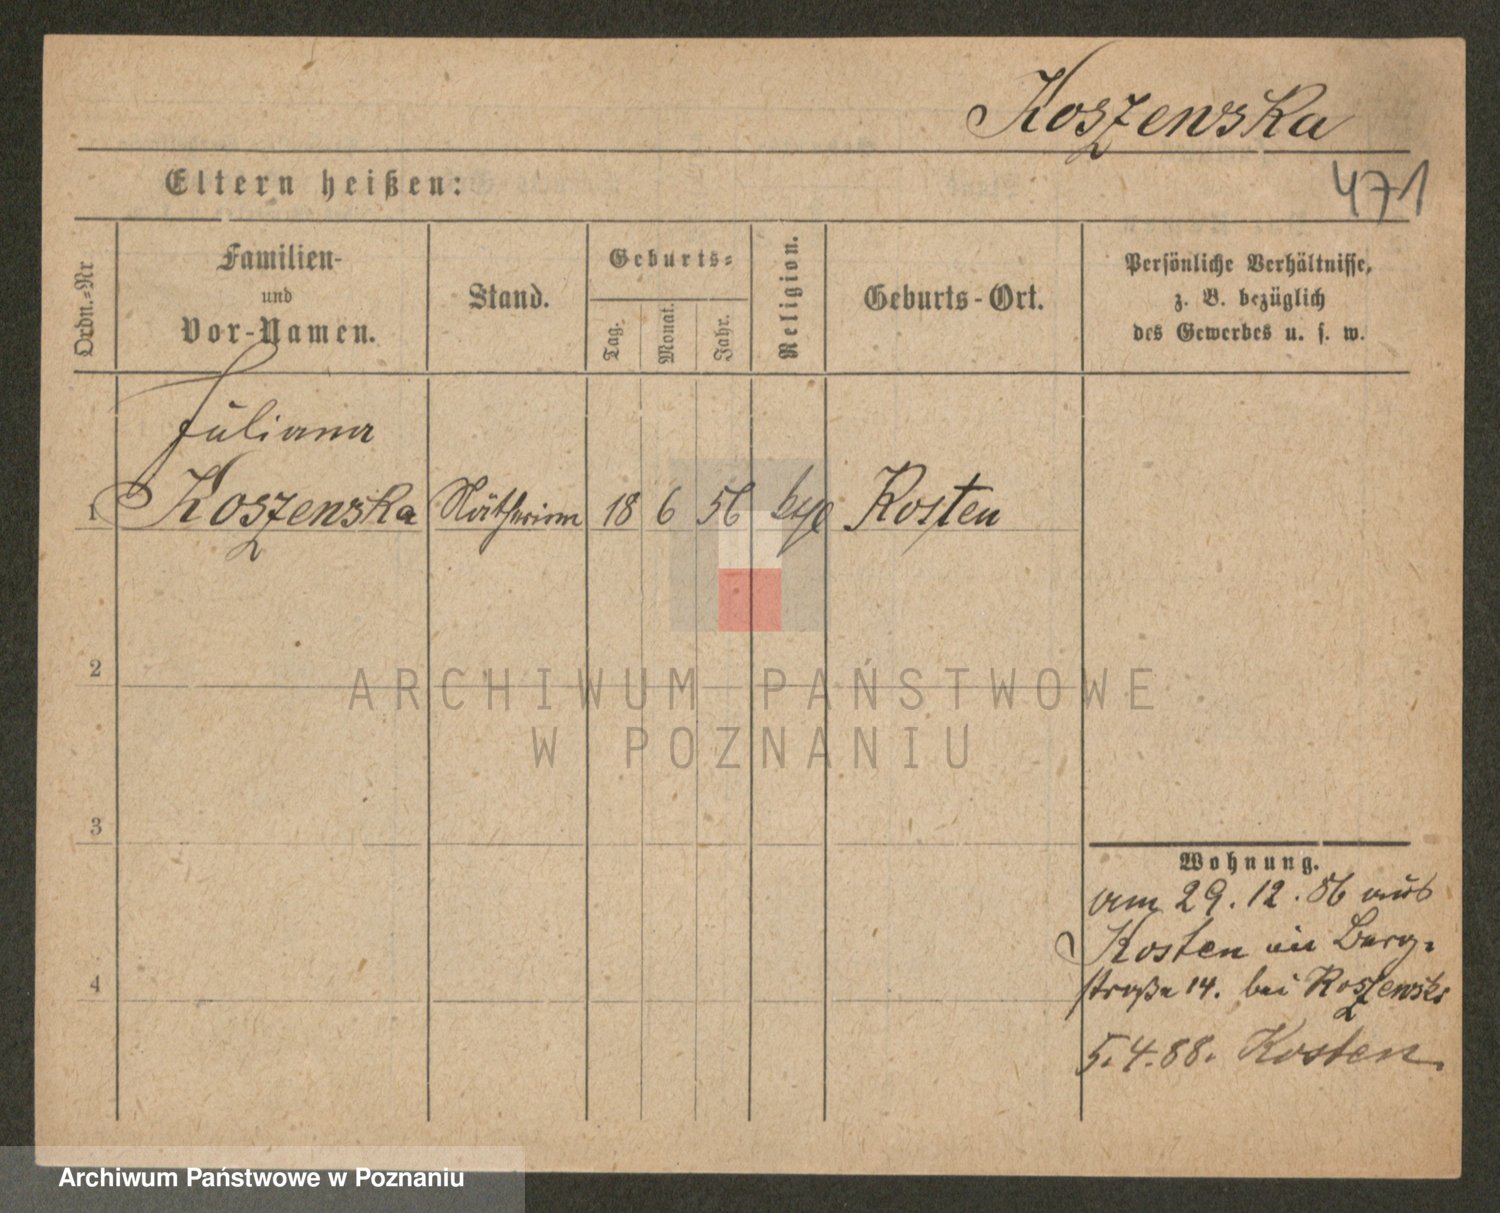 Koszewska
Eltern heißen:
471
Ordn.=Nr
Familien-
und
Vor-Namen.
Stand.
Geburts=
Tag.
Monat.
Jahr.
Religion.
Geburts-Ort.
Persönliche Verhältnisse,
z. B. bezüglich
des Gewerbes u. s. w.
Juliana
1 Koszewska Nätherinn 18 6 56 Kosten
2
ARCHIWUM PAŃSTWOWE
W POZNANIU
3
Wohnung.
am 29. 12. 86 aus
Kosten in Berg-
4
straße 14. bei Koszewski
5. 4. 88. Kosten.
Archiwum Państwowe w Poznaniu